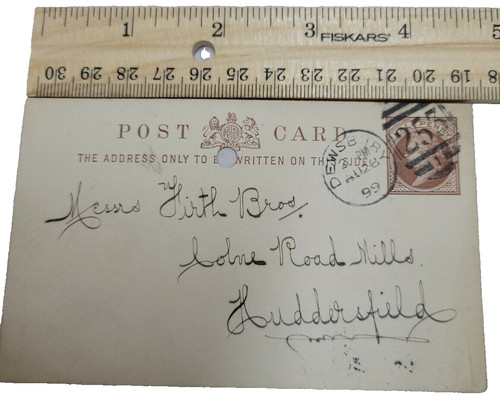 1 2 3 FISKARS® 4 5
30 29 28 27 26 25 24 23 22 21 20 19 18
POST CARD
THE ADDRESS ONLY TO BE WRITTEN ON THIS SIDE
DEWSBURY
AU 28
99
Messrs Hirth Bros.
Colne Road Mills.
Huddersfield